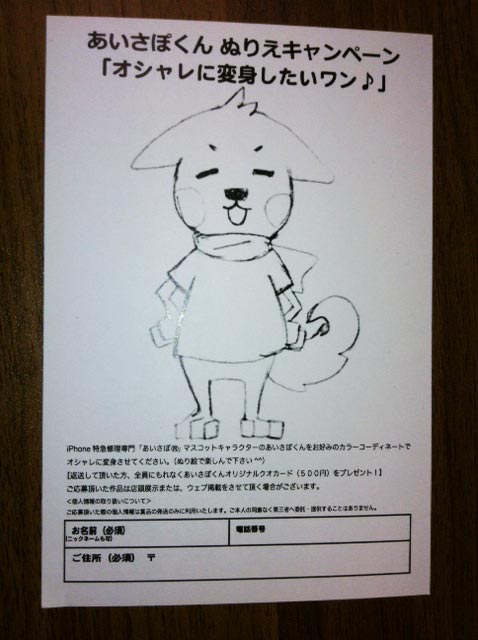 あいさぽくん ぬりえキャンペーン
「オシャレに変身したいワン♪」
iPhone 特急修理専門「あいさぽ㈱」マスコットキャラクターのあいさぽくんをお好みのカラーコーディネートで
オシャレに変身させてください。（ぬり絵で楽しんで下さい ^^）
【返送して頂いた方、全員にもれなくあいさぽくんオリジナルクオカード（５００円）をプレゼント！】
ご応募頂いた作品は店頭展示または、ウェブ掲載をさせて頂く場合がございます。
<個人情報の取り扱いについて>
ご応募頂いた際の個人情報は賞品の発送のみに利用いたします。ご本人の同意なく第三者へ委託・提供することはありません。
お名前（必須） 電話番号
（ニックネームも可）
ご住所（必須） 〒